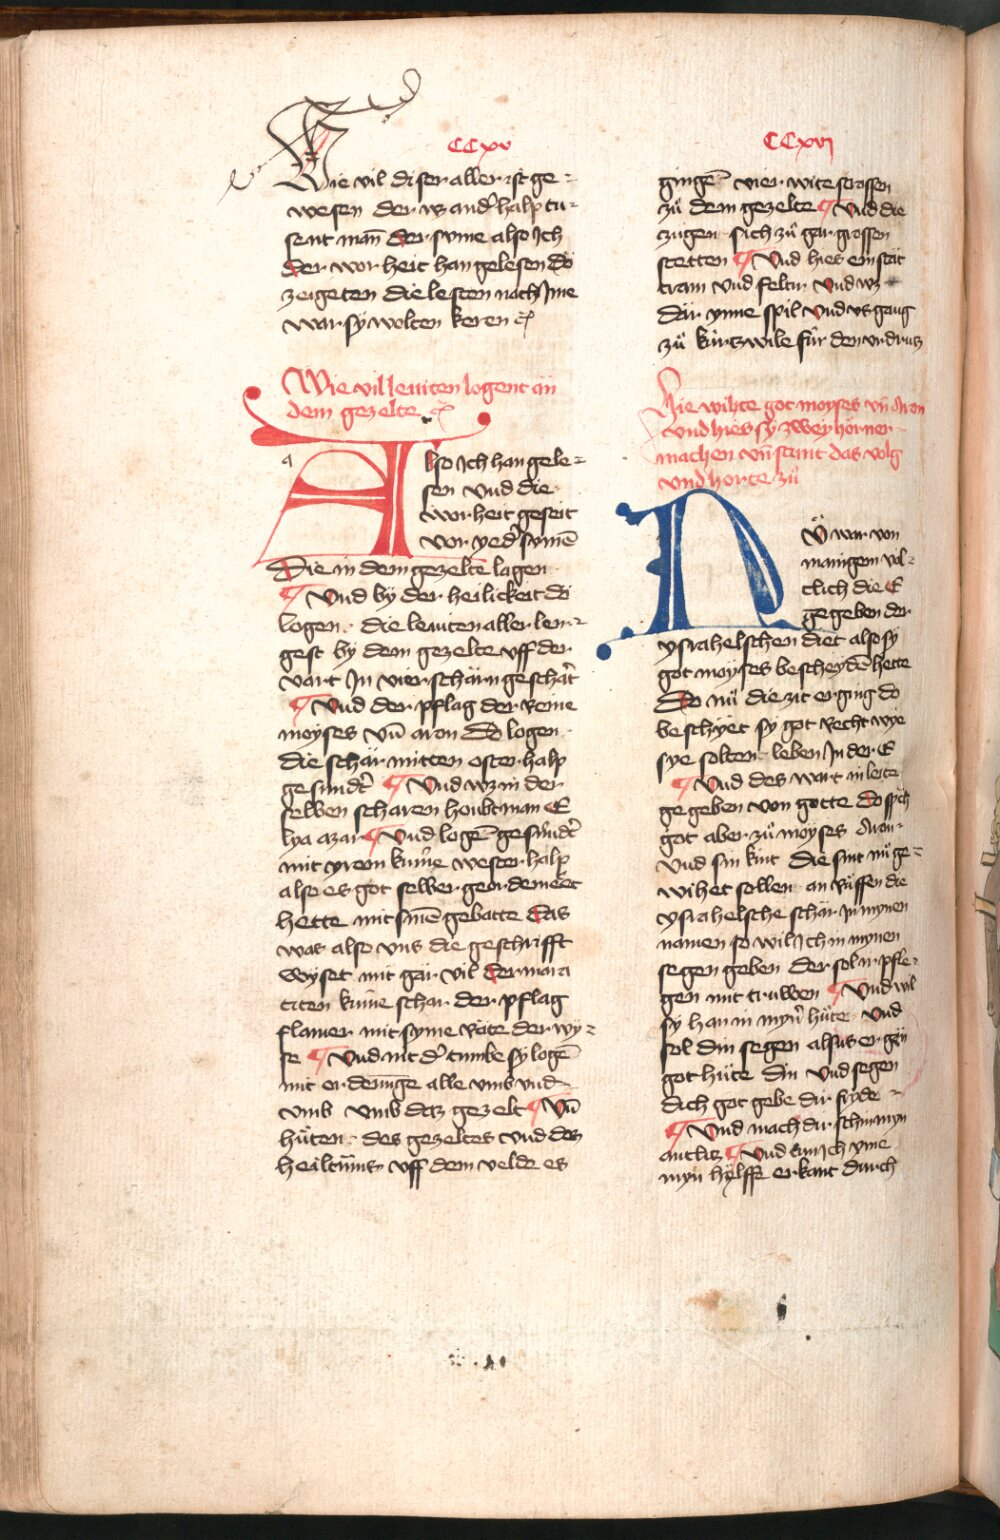 CCxv
Wie vil diser aller ist ge-
wesen der wz anderhalp tu-
sent man der sume also Ich
der worheit han gelesen do
zeigeten die lesten noch Ime
war sy wolten keren
Wie vil leuiten logent an
dem gezelte
Also Ich han gele-
sen vnd die
worheit geseit
vor yeder sumē
Die in dem gezelte lagen
Vnd by der heilickeit do
logen die leuiten aller len-
gest by dem gezelte vff der
vart In vier schārn geschāt
Vnd der pflag der Reine
moyses vn̄ aron Do logen
die schar mitten oster halp
gesundt Vnd wz in der
selben scharen houbtman E
lya azar Vnd logē gesundt
mit yrem kunne wester halp
also es got selber geordemet
hette mit sinē gebotte das
was also vns die geschrifft
wyset mit gar vil der mara
riten kunne schar der pflag
flamer mit syme Rāte der wy-
se Vnd nit d' tumbe sy logē
mit ordenūge alle vmb vnd
vmb vmb daz gezelt Vn̄
hūten des gezeltes vnd des
heiltums vff dem velde es
CCxvi
gingē vier wite strossen
zů dem gezelte Vnd die
zugen sich zů gar grossen
stetten Vnd hies ein stāt
tram vnd feltur Vnd wz
dar ynne spil vnd vsgang
zů kurtzwile für den vrdrutz
Hie wihte got moyses vn̄ Aron
vnd hies sy zwey hörner
machen vn̄ stunt das volg
vnd horte zů
Nů war von
manigem vol-
clich die E
gegeben der
ysrahelschen diet also sy
got moyses bescheydē hette
Do nů die zit erging do
beschyet sy got Recht wye
sye solten leben In der E
Vnd des wart in leite
gegeben von gotte do spch
got aber zů moyses Aron
Vnd sin kint die sint nů ge-
wihet sollen an Růffen die
ysrahelsche schar In mynen
namen so wil Ich in mynen
segen geben der sol ir pfle-
gen mit truwen Vnd wil
sy han in mynr hůte Vnd
sol din segen alsus ergan
got hůte din Vnd segen
dich got gebe dir fryde
Vnd mach dir schin myn
antlitz Vnd tun Ich yme
myn hylffe erkant durch